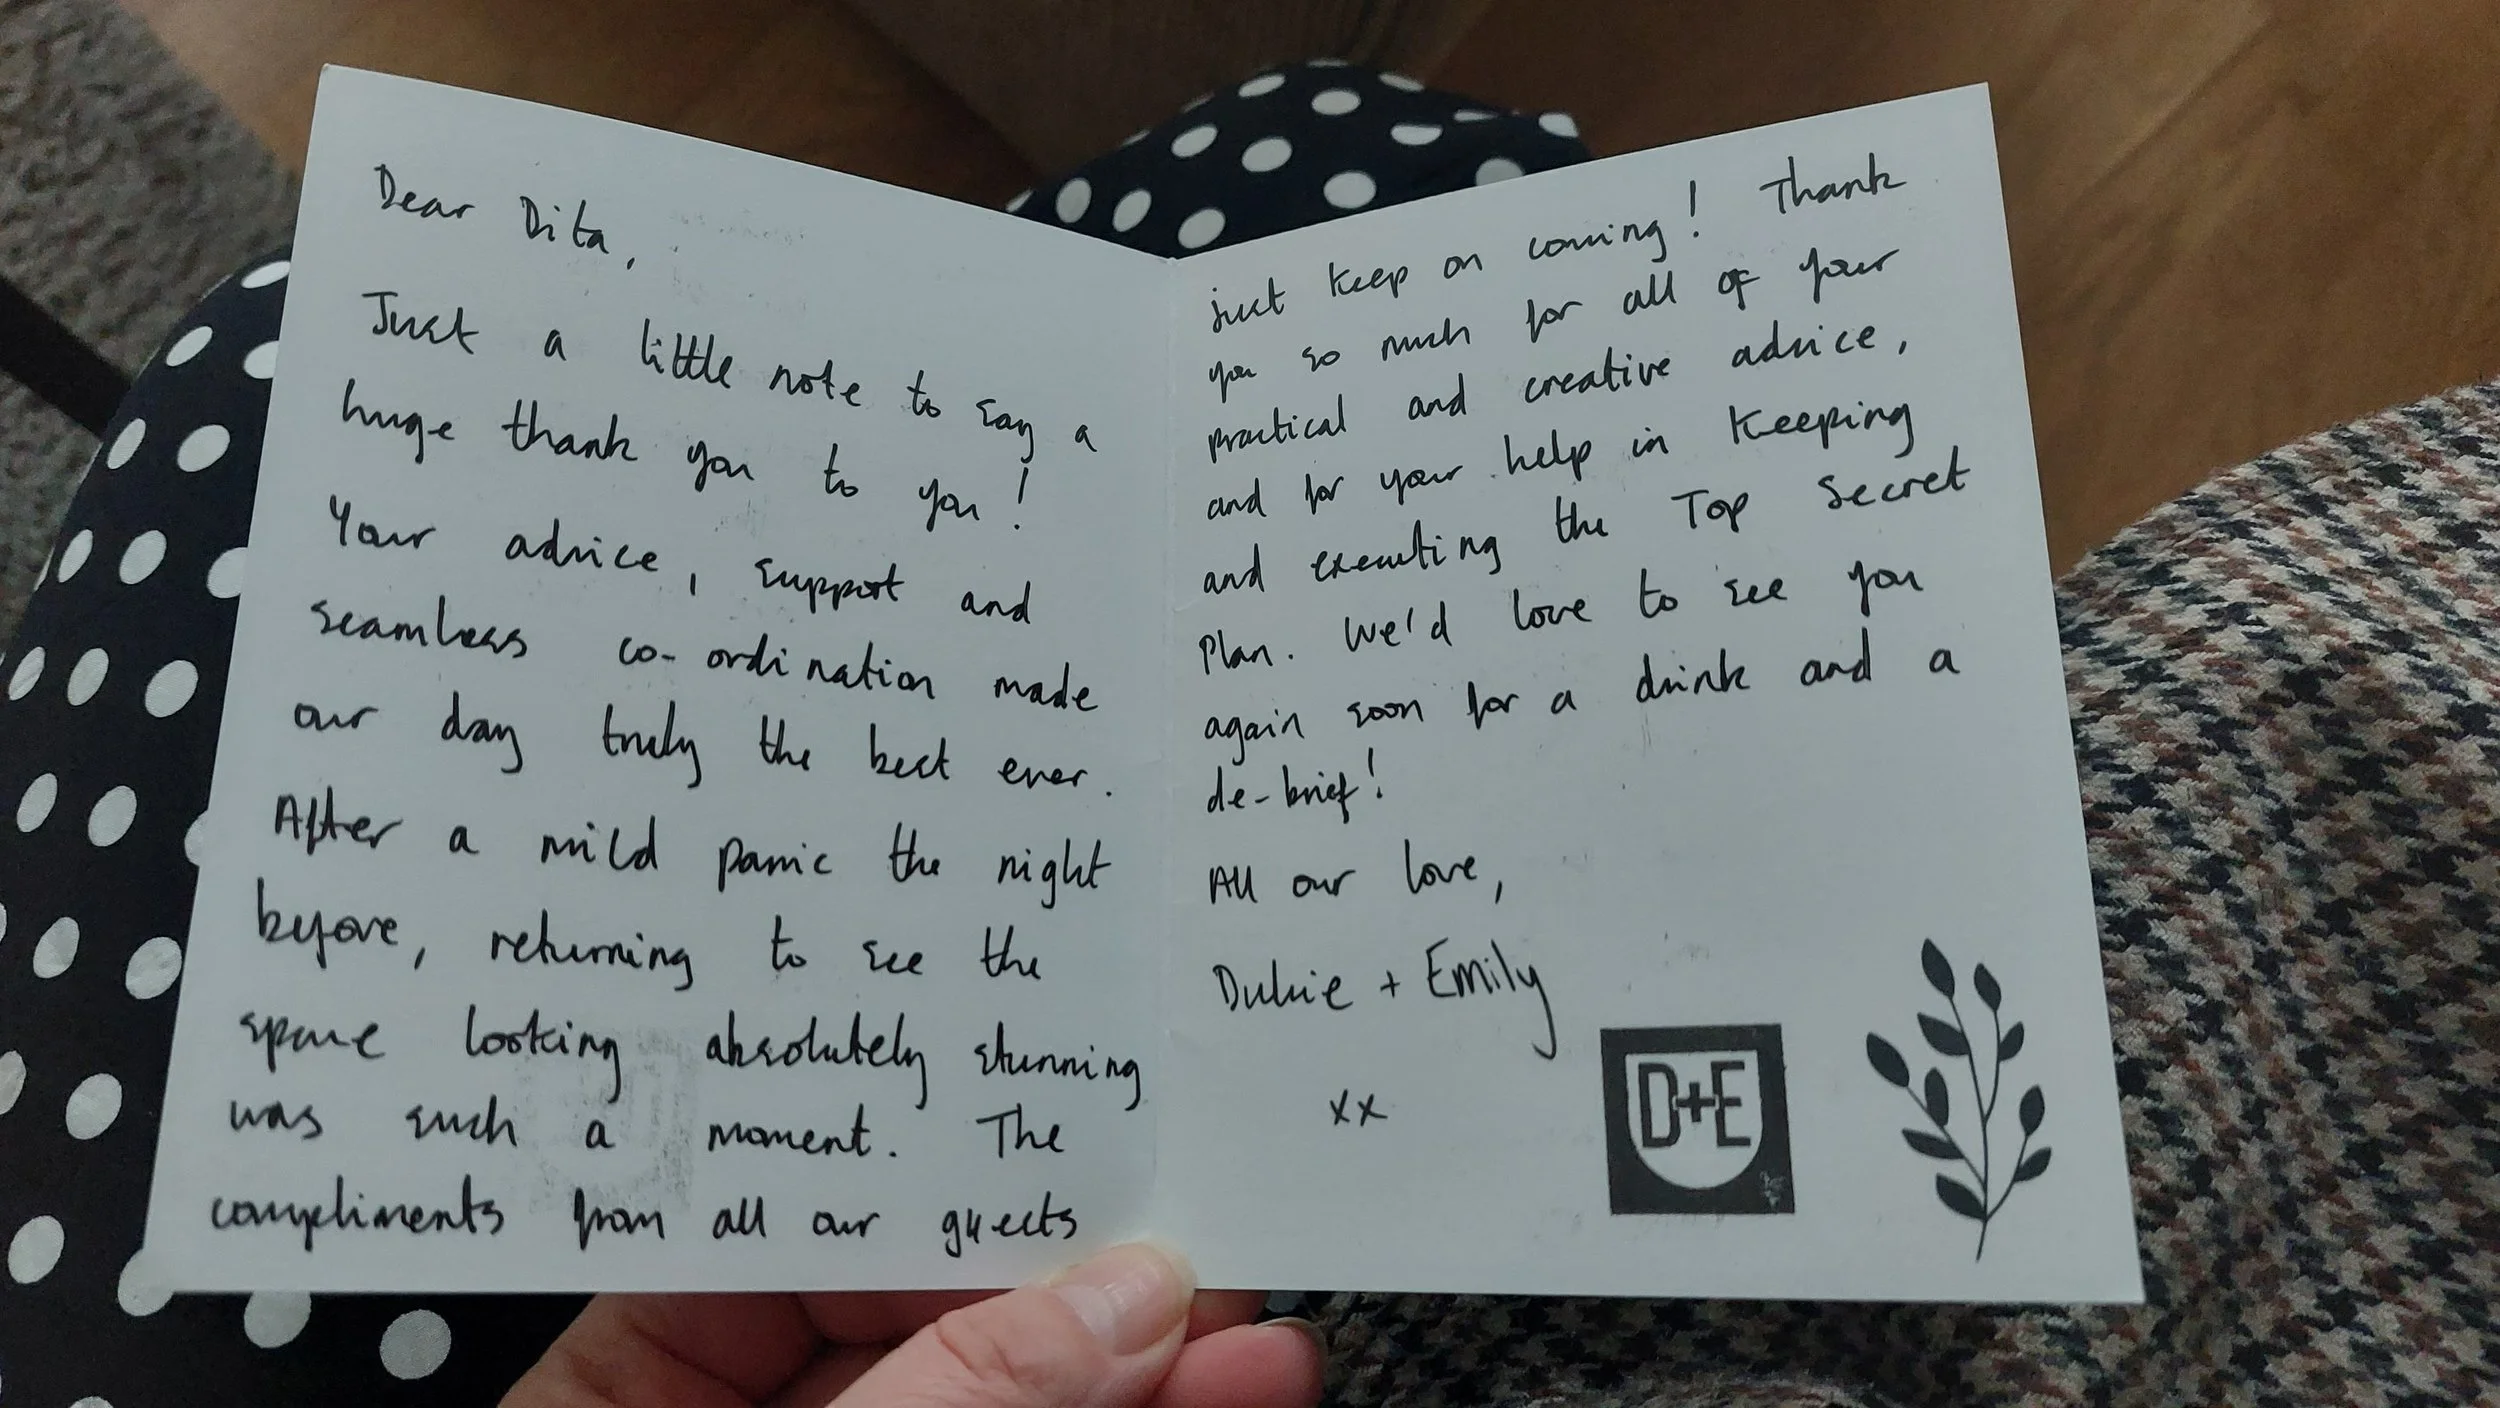 Dear Dita,
Just a little note to say a
huge thank you to you!
Your advice, support and
seamless co-ordination made
our day truly the best ever.
After a mild panic the night
before, returning to see the
space looking absolutely stunning
was such a moment. The
compliments from all our guests
just keep on coming! Thank
you so much for all of your
practical and creative advice,
and for your help in keeping
and executing the Top Secret
Plan. We'd love to see you
again soon for a drink and a
de-brief!
All our love,
+ Emily
xx
D+E